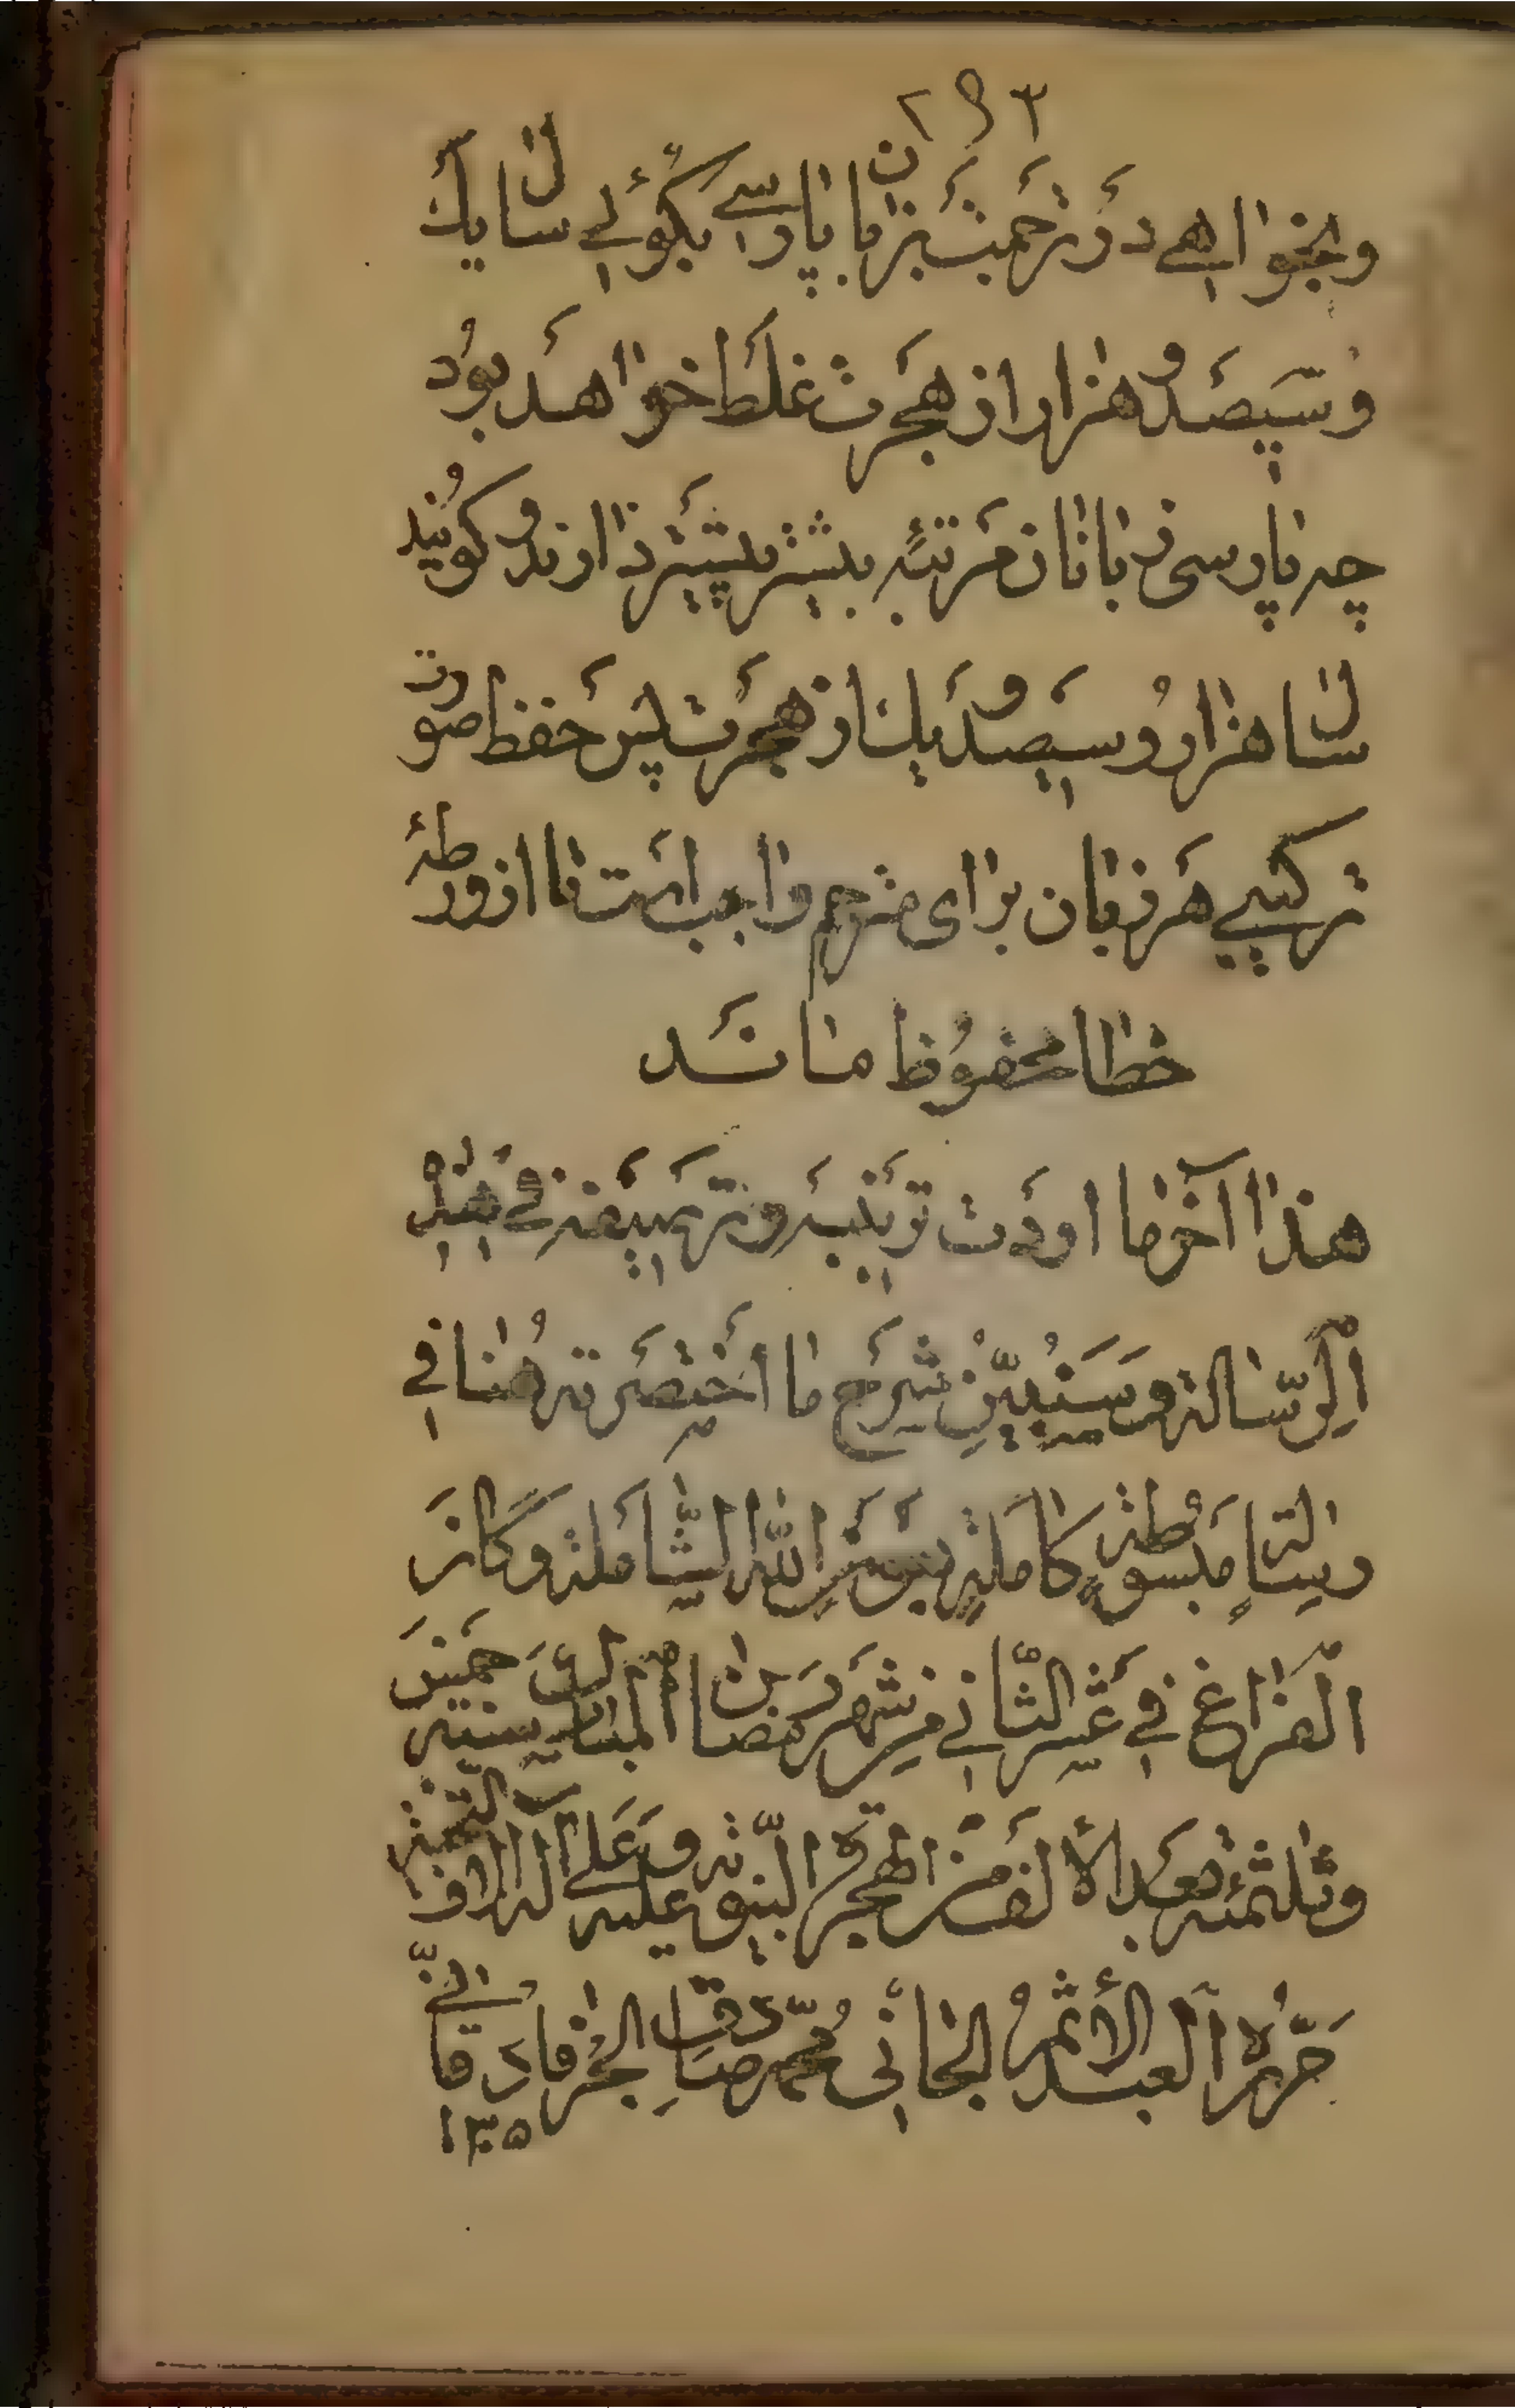 ۲۹۳
وبخواهے دَر ترجَمت بزَبان پارسے بگوئے سال یك
وسیصَد و هزار از هجَرت غلَط خواهَد بود
چه پارسی زبانان مَرتبَه بیشتر پیشَتر ذارند و کویند
سال هزار و سیصَد و یك از هجَرت پسَ حفظ صورت
ترکیبے هَر زبان برای مترجم واجب است تا از ورطهٔ
خطا محفوظ مانَد
هذا آخر ما اردت ترتیبَه و ترصیفه فے هٰذه
اَلرِّسالة و سَنُبیِّن شرَح ما اختصَرته هُنا في
رسالةٍ مبسوطةٍ كاملةٍ بعَون اللّٰه الشّاملة و كان
الفراغ في عَشر الثّاني من شهَر رمَضان المبارك خمس سنه
وثلثمئة بعَد الألف من الهجرة النّبويّة عليه وعَلى آله الاف التّحيّة
حَرَّرهُ العبد الأثمُ الجاني مُحمّد صادق الحُر فارقانيّ
۱۳۰۵